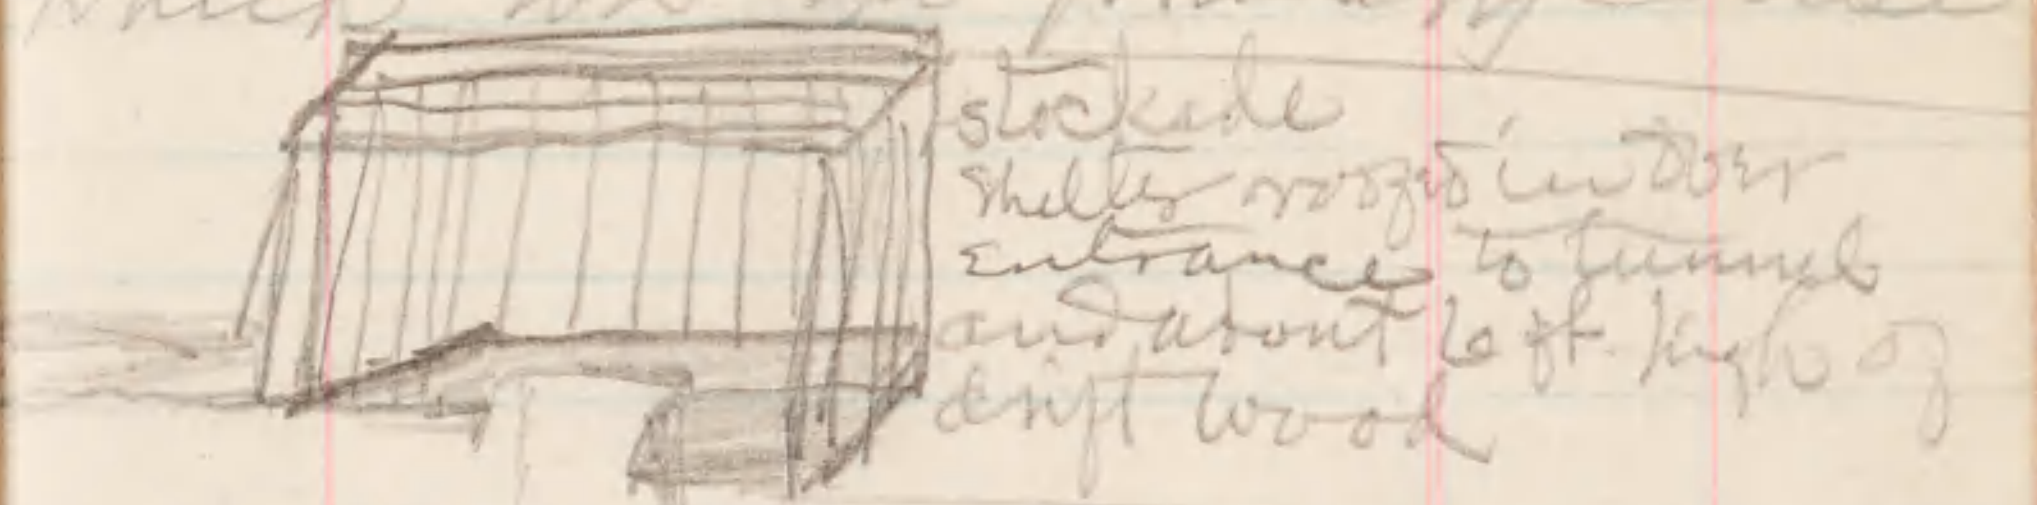 which
stockade
shelter roofed in over
entrance to tunnel
and about 6 ft. high of
drift wood